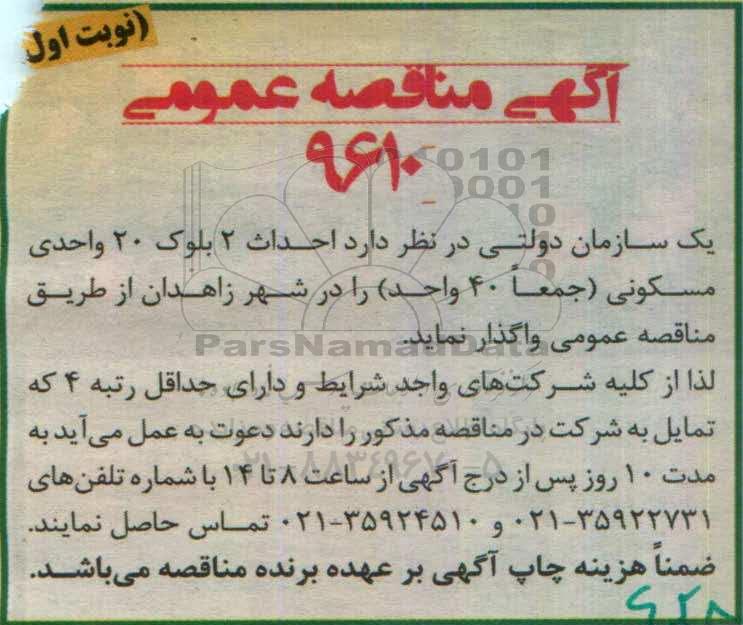 (نوبت اول
آگهی مناقصه عمومی
۹۶۱۰
یک سازمان دولتی در نظر دارد احداث ۲ بلوک ۲۰ واحدی
مسکونی (جمعاً ۴۰ واحد) را در شهر زاهدان از طریق
مناقصه عمومی واگذار نماید.
ParsNamadData
لذا از کلیه شرکت‌های واجد شرایط و دارای حداقل رتبه ۴ که
تمایل به شرکت در مناقصه مذکور را دارند دعوت به عمل می‌آید به
مدت ۱۰ روز پس از درج آگهی از ساعت ۸ تا ۱۴ با شماره تلفن‌های
۰۲۱-۳۵۹۲۲۷۳۱ و ۰۲۱-۳۵۹۲۴۵۱۰ تماس حاصل نمایند.
ضمناً هزینه چاپ آگهی بر عهده برنده مناقصه می‌باشد.